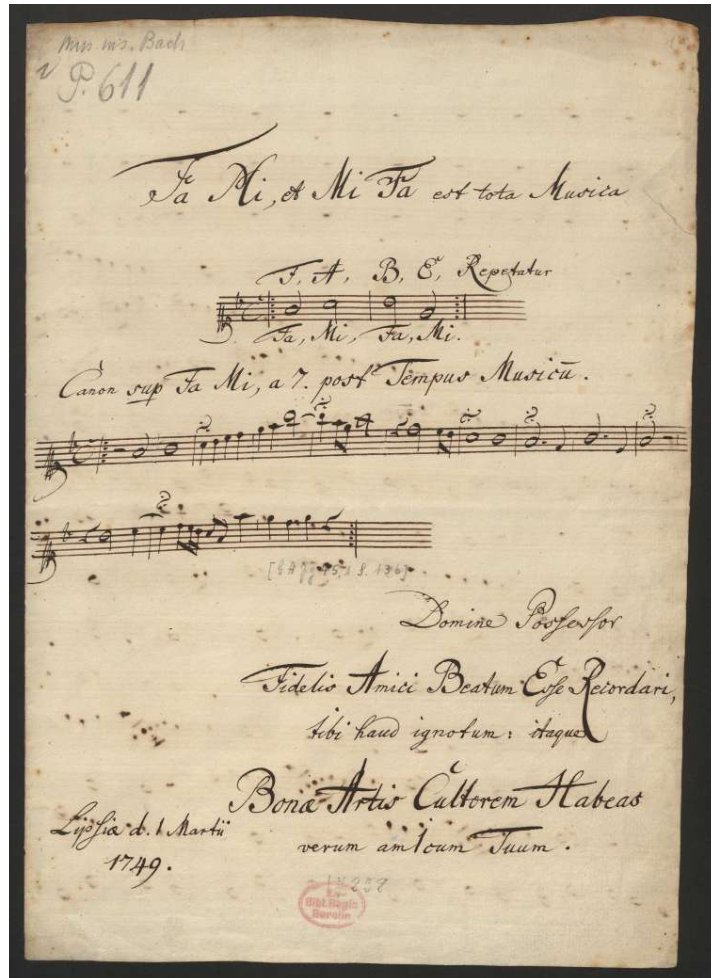 Mus. ms. Bach
P. 611
Fa Mi, et Mi Fa est tota Musica
F, A, B, E, Repetatur
Fa, Mi, Fa, Mi.
Canon sup Fa Mi, a 7. post Tempus Musicū.
Domine Possessor
Fidelis Amici Beatum Esse Recordari,
tibi haud ignotum: itaque
Bonæ Artis Cultorem Habeas
verum amIcum Tuum.
Lipsiæ d. 1 Martii
1749.
Bibl. Regia
Berolin